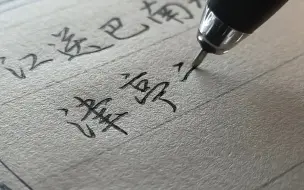 江送巴南
津亭